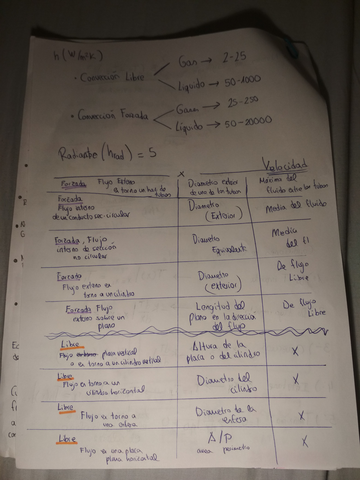 h (W/m²K)
• Convección Libre → Gas → 2-25
→ Líquido → 50-1000
• Convección Forzada → Gas → 25-250
→ Líquido → 50-20000
Radiante (hrad) = 5
x
Velocidad
Forzada Flujo Externo
en torno a un haz de
tubos
Diametro exterior
de uno de los tubos
Máxima del
fluido entre los tubos
Forzada
Flujo interno
de un conducto circular
Diametro
(Exterior)
Media del fluido
Forzada, Flujo
interno de sección
no circular
Diametro
Equivalente
Media
del fl
Forzada
Flujo externo en
torno a un cilindro
Diametro
(exterior)
De flujo
Libre
Forzada Flujo
externo sobre un
plano
Longitud del
plano en la dirección
del flujo
De flujo
Libre
Libre
Flujo externo placa vertical
o en torno a un cilindro vertical
Altura de la
placa o del cilindro
X
Libre
Flujo en torno a un
cilindro horizontal
Diametro del
cilindro
X
Libre
Flujo en torno a
una esfera
Diametro de la
esfera
X
Libre
Flujo en una placa
plana horizontal
A/P
area perimetro
X